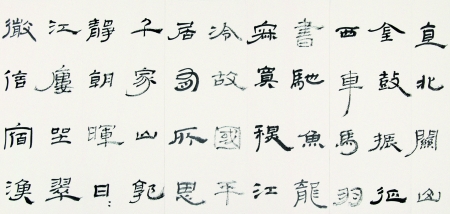 直北關山
金鼓振征
西車馬羽
書馳魚龍
寂寞秋江
冷故國平
居有所思
千家山郭
靜朝暉日〻
江廔坐翠
微信宿漁